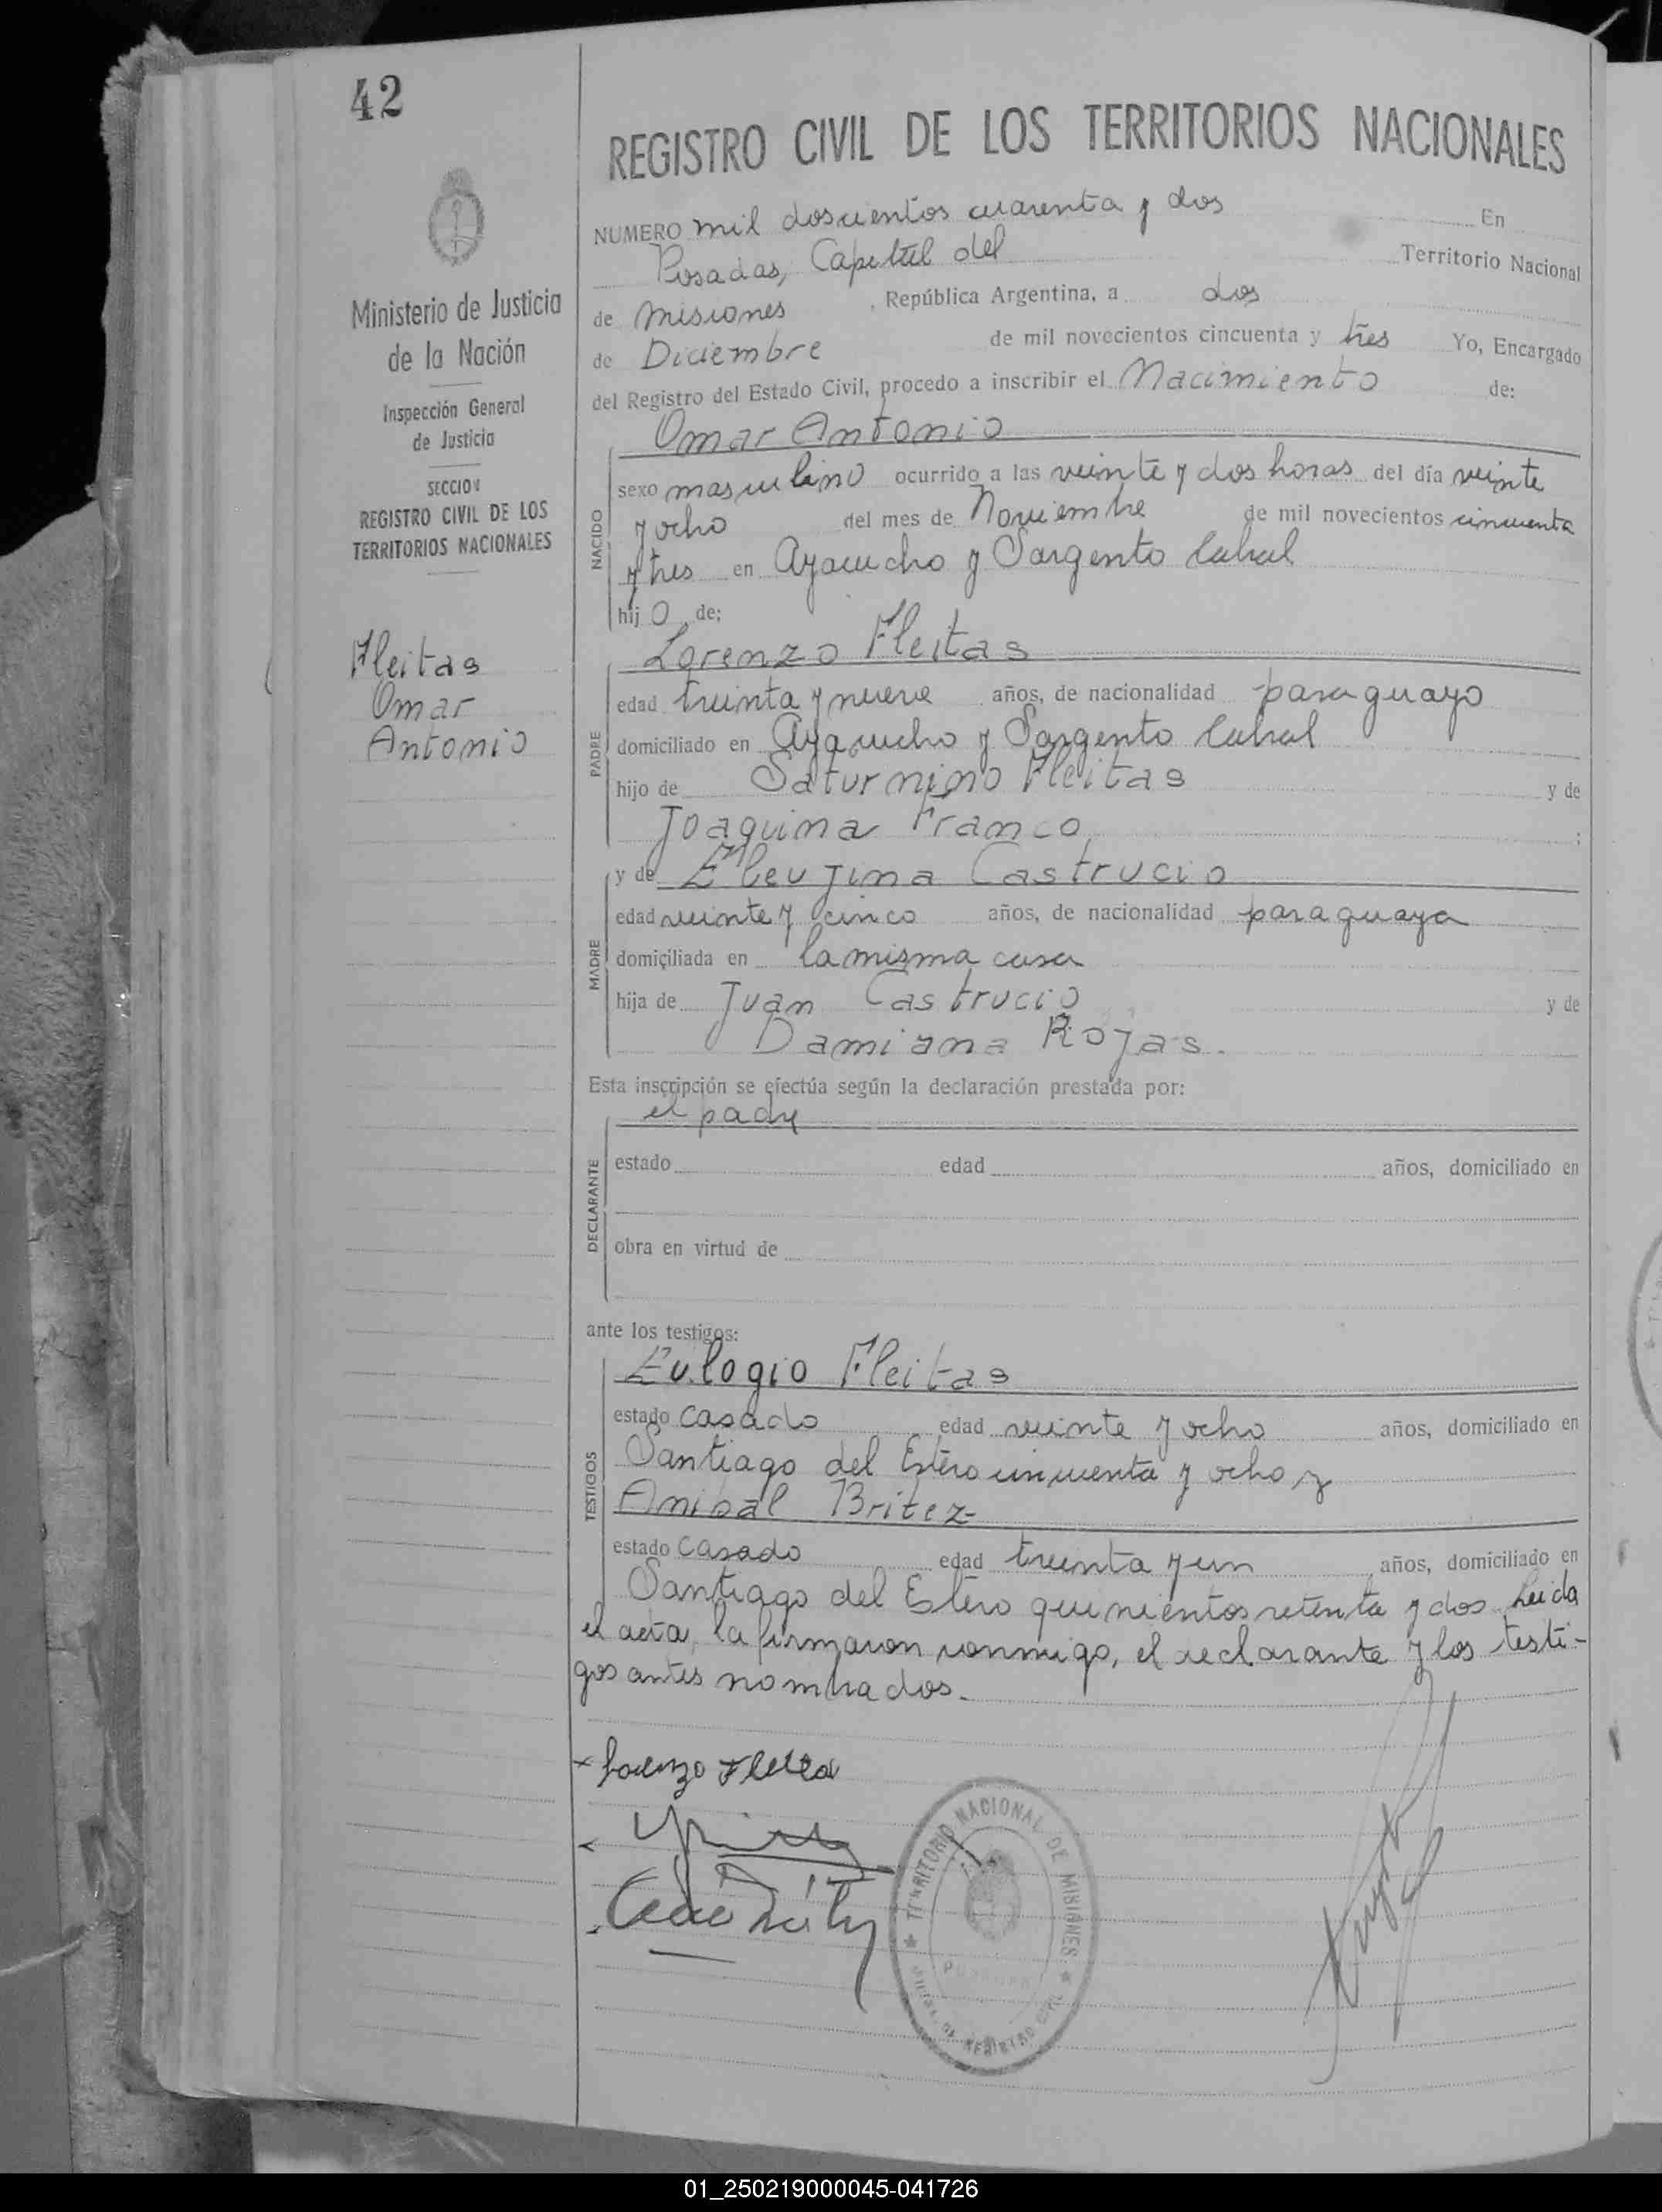 42
REGISTRO CIVIL DE LOS TERRITORIOS NACIONALES
Ministerio de Justicia
de la Nación
Inspección General
de Justicia
SECCION
REGISTRO CIVIL DE LOS
TERRITORIOS NACIONALES
Fleitas
Omar
Antonio
NUMERO mil doscientos cuarenta y dos En
Posadas, Capital del Territorio Nacional
de Misiones, República Argentina, a dos
de Diciembre de mil novecientos cincuenta y tres Yo, Encargado
del Registro del Estado Civil, procedo a inscribir el Nacimiento de:
Omar Antonio
NACIDO
sexo masculino ocurrido a las veinte y dos horas del día veinte
y ocho del mes de Noviembre de mil novecientos cincuenta
y tres en Ayacucho y Sargento Cabral
hijo de:
Lorenzo Fleitas
PADRE
edad treinta y nueve años, de nacionalidad paraguayo
domiciliado en Ayacucho y Sargento Cabral
hijo de Saturnino Fleitas y de
Joaquina Franco;
y de Eleujina Castrucio
MADRE
edad veinte y cinco años, de nacionalidad paraguaya
domiciliada en la misma casa
hija de Juan Castrucio y de
Damiana Rojas.
Esta inscripción se efectúa según la declaración prestada por:
el padre
DECLARANTE
estado edad años, domiciliado en
obra en virtud de
ante los testigos:
Eulogio Fleitas
TESTIGOS
estado casado edad veinte y ocho años, domiciliado en
Santiago del Estero cincuenta y ocho y
Anibal Britez
estado casado edad treinta y un años, domiciliado en
Santiago del Estero quinientos setenta y dos Leida
el acta, la firmaron conmigo, el declarante y los testi-
gos antes nombrados.
Lorenzo Fleitas
TERRITORIO NACIONAL DE MISIONES
REGISTRO CIVIL
01_250219000045-041726